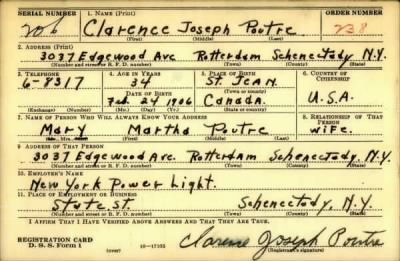 SERIAL NUMBER 1. NAME (Print) ORDER NUMBER
206 Clarence Joseph Poutre 238
(First) (Middle) (Last)
2. ADDRESS (Print)
3037 Edgewood Ave Rotterdam Schenectady N.Y.
(Number and street or R. F. D. number) (Town) (County) (State)
3. TELEPHONE 4. AGE IN YEARS 5. PLACE OF BIRTH 6. COUNTRY OF CITIZENSHIP
6-8317 34 St. Jean.
DATE OF BIRTH (Town or county)
Feb. 24 1906 Canada. U.S.A.
(Exchange) (Number) (Mo.) (Day) (Yr.) (State or country)
7. NAME OF PERSON WHO WILL ALWAYS KNOW YOUR ADDRESS 8. RELATIONSHIP OF THAT PERSON
Mary Martha Poutre wife.
(First) (Middle) (Last)
9. ADDRESS OF THAT PERSON
3037 Edgewood Ave. Rotterdam Schenectady. N.Y.
(Number and street or R. F. D. number) (Town) (County) (State)
10. EMPLOYER'S NAME
New York Power Light.
11. PLACE OF EMPLOYMENT OR BUSINESS
State. ST. Schenectady, N.Y.
(Number and street or R. F. D. number) (Town) (County) (State)
I AFFIRM THAT I HAVE VERIFIED ABOVE ANSWERS AND THAT THEY ARE TRUE.
REGISTRATION CARD
D. S. S. Form 1 (over) 16—17105 Clarence Joseph Poutre
(Registrant's signature)